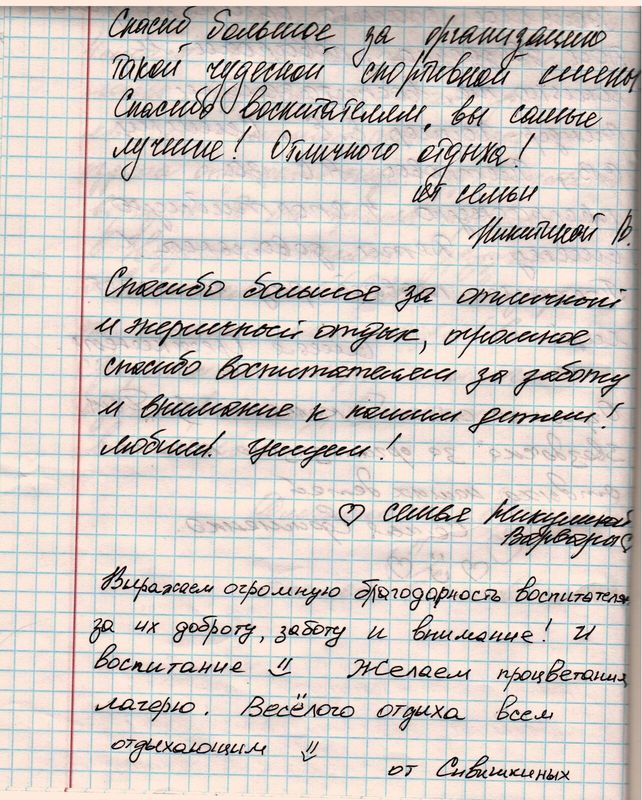 Спасиб большое за организацию
такой чудесной спортивной смены
Спасибо воспитателям, вы самые
лучшие! Отличного отдыха!
от семьи
Никитиной В.
Спасибо большое за отличный
и энергичный отдых, огромное
спасибо воспитателям за заботу
и внимание к нашим детям!
Любим! Целуем!
♡ семья Никулиной
Варвары ♡
Выражаем огромную благодарность воспитателям
за их доброту, заботу и внимание! И
воспитание Желаем процветания
лагерю. Весёлого отдыха всем
отдыхающим
от Сивишкиных